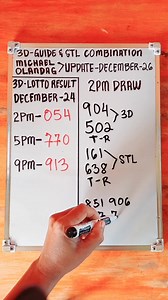 3D-GUIDE & STL COMBINATION
MICHAEL OLANDAG > UPDATE-DECEMBER-26
3D-LOTTO RESULT
DECEMBER-24
2PM-054
5PM-770
9PM-913
2PM DRAW
904
502 > 3D
T-R
161
638 > STL
T-R
851 906